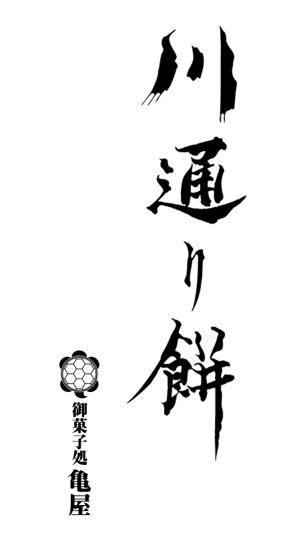 川通り餅
御菓子処 亀屋